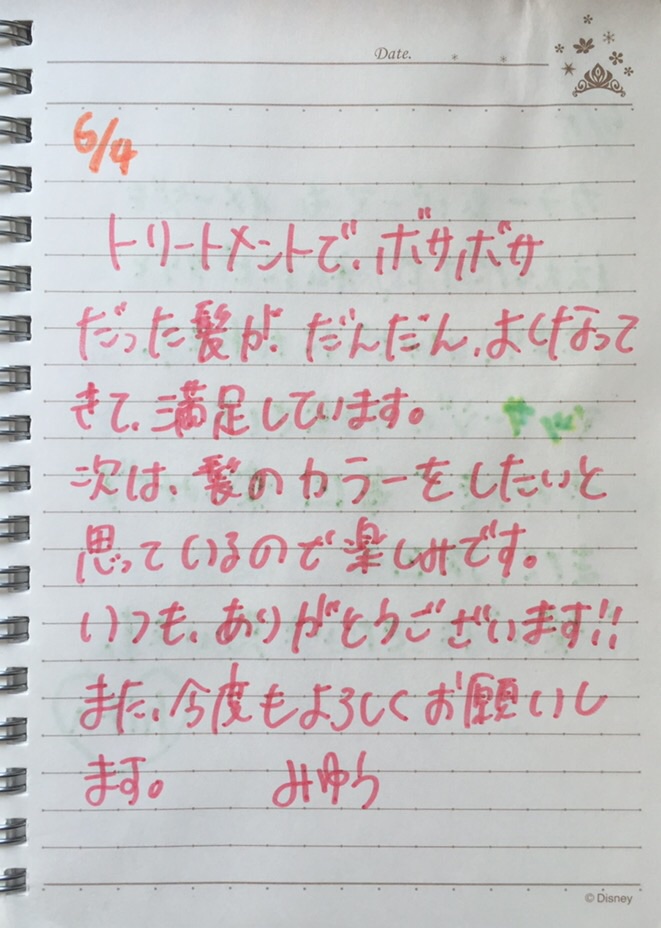 Date.
6/4
トリートメントで、ボサボサ
だった髪が、だんだん、よくなって
きて、満足しています。
次は、髪のカラーをしたいと
思っているので楽しみです。
いつも、ありがとうございます!!
また、今度もよろしくお願いし
ます。 みゆう
© Disney